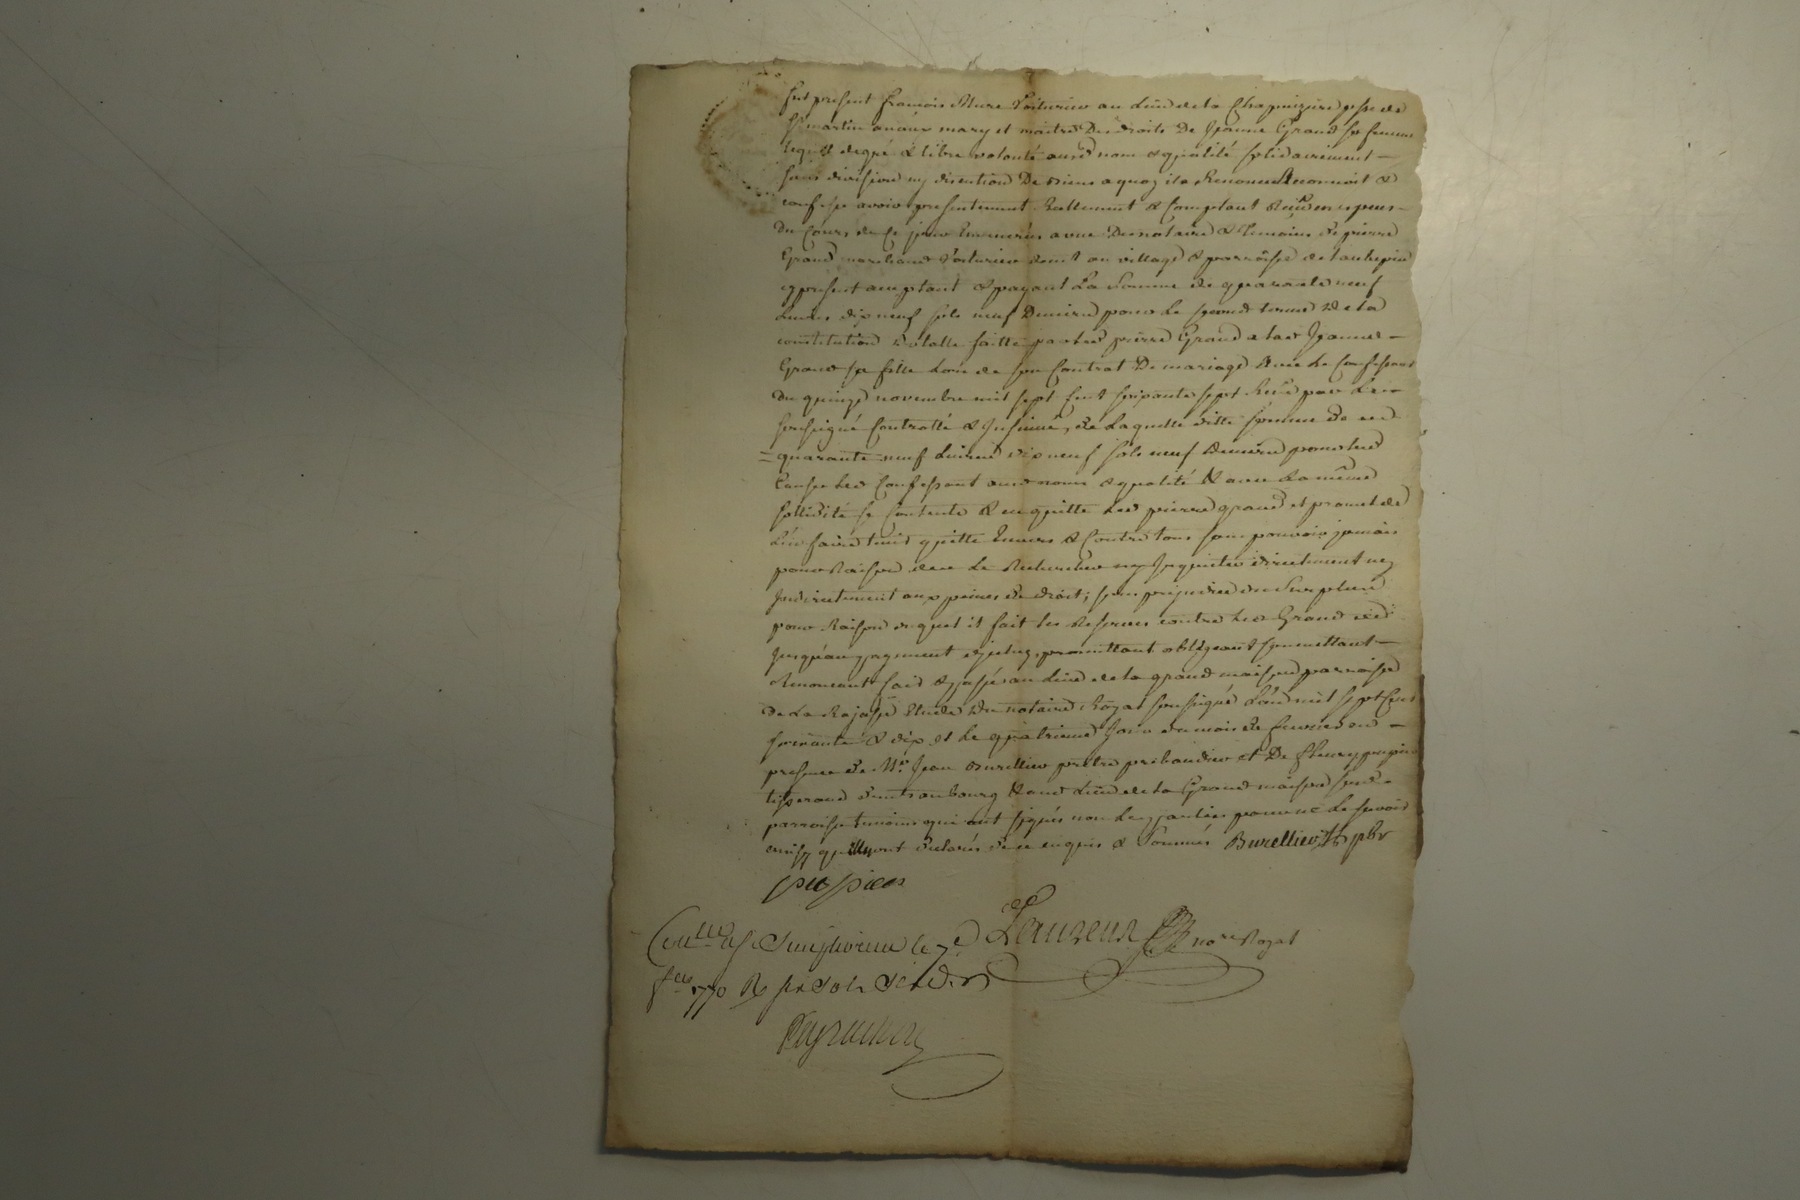 fut present francois Mure Voiturier au Lieu de la Chapuizire psse de
St martin anaux mary et maitre des droits De Jeanne Grand sa femme
lequel de gré & libre volonté ausd nom & qualité solidairement —
sans division ny discution De biens a quoy ils Renonce Reconnoit &
confesse avoir presentement Reellement & Comptant Reçu en especes
Du Cours de Ce jour Enumerés a vue Du notaire & Temoins De pierre
Grand marchand Voiturier demt au village & parroisse de
cy present acceptant & payant La Somme de quarante neuf
Livres dix neuf sols neuf Deniers pour Le second terme De la
constitution dotalle faitte par led pierre Grand a lad Jeanne —
Grand sa fille Lors de son Contrat De mariage Avec Le Confessant
du quinze novembre mil sept Cent soixante sept Reçu par Le no
soussigné Controllé & Insinué, de Laquelle ditte somme de
= quarante neuf Livres dix neuf sols neuf deniers pour lad
Cause Led Confessant ausd noms & qualité & avec La même
sollidité se Contente & en quitte Led pierre grand et promet de
L'en faire tenir quitte Envers & Contre tous sans pouvoir jamais
pour Raison de ce Le Rechercher ny Inquieter directement ny
Indirectement aux peines de droit; sans prejudice du Surplus
pour Raison duquel il fait les Reserves contre Led Grand
jusqu'au payement promettant obligeant soumettant —
Renoncant fait & passé au Lieu de la grand maison parroisse
De La Rajasse Etude du notaire Royal soussigné L'an mil sept Cent
soixante & dix et Le quatrieme Jour du mois de fevrier en —
presence de Mre Jean Burellier prêtre prebandier et De fleury pupier
tisserand demts au bourg & aud Lieu de la Grand maison sud
parroisse temoins qui ont signés non Les parties pour ne Le savoir
ainsy qu'elles ont declarés de ce enquis & Sommés Burellier pbr
pupier
Laurens nore Royal
Conllé a St Simphorien le 7e
fer 1770 R six sols